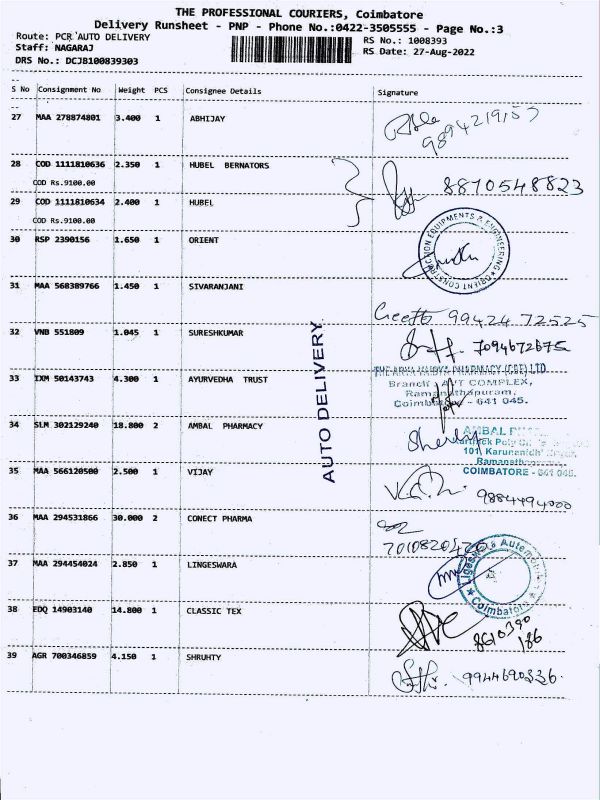 THE PROFESSIONAL COURIERS, Coimbatore
Delivery Runsheet - PNP - Phone No.:0422-3505555 - Page No.:3
Route: PCR AUTO DELIVERY
RS No.: 1008393
Staff: NAGARAJ
RS Date: 27-Aug-2022
DRS No.: DCJB100839303
S No Consignment No Weight PCS Consignee Details Signature
27 MAA 278874801 3.400 1 ABHIJAY
28 COD 1111810636 2.350 1 HUBEL BERNATORS
COD Rs.9100.00
8870548823
29 COD 1111810634 2.400 1 HUBEL
COD Rs.9100.00
30 RSP 2390156 1.650 1 ORIENT
ORIENT CONSTRUCTION EQUIPMENTS & ENGINEERING
31 MAA 568389766 1.450 1 SIVARANJANI
Geetha 99424 72525
32 VNB 551809 1.045 1 SURESHKUMAR
7094672675
AUTO DELIVERY
33 IXM 50143743 4.300 1 AYURVEDHA TRUST
PHARMACY (CBE) LTD
Branch: APT COMPLEX,
Ramanathapuram,
Coimbatore - 641 045.
34 SLM 302129240 18.800 2 AMBAL PHARMACY
AMBAL
101, Karunanidhi
Ramanathapuram
COIMBATORE - 641 045.
35 MAA 566120500 2.500 1 VIJAY
9884494000
36 MAA 294531866 30.000 2 CONECT PHARMA
37 MAA 294454024 2.850 1 LINGESWARA
Coimbatore
38 EDQ 14903140 14.800 1 CLASSIC TEX
8610390
186
39 AGR 700346859 4.150 1 SHRUHTY
9944690336